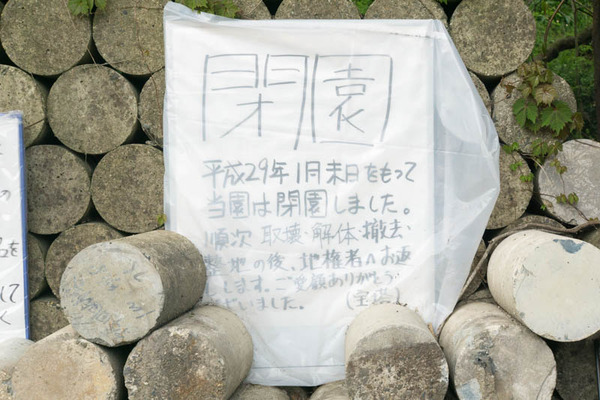 閉園
平成29年1月末日をもって
当園は閉園しました。
順次 取壊・解体・撤去・
整地の後、地権者へお返
します。ご愛顧ありがとう
ございました。
の
を
して
く